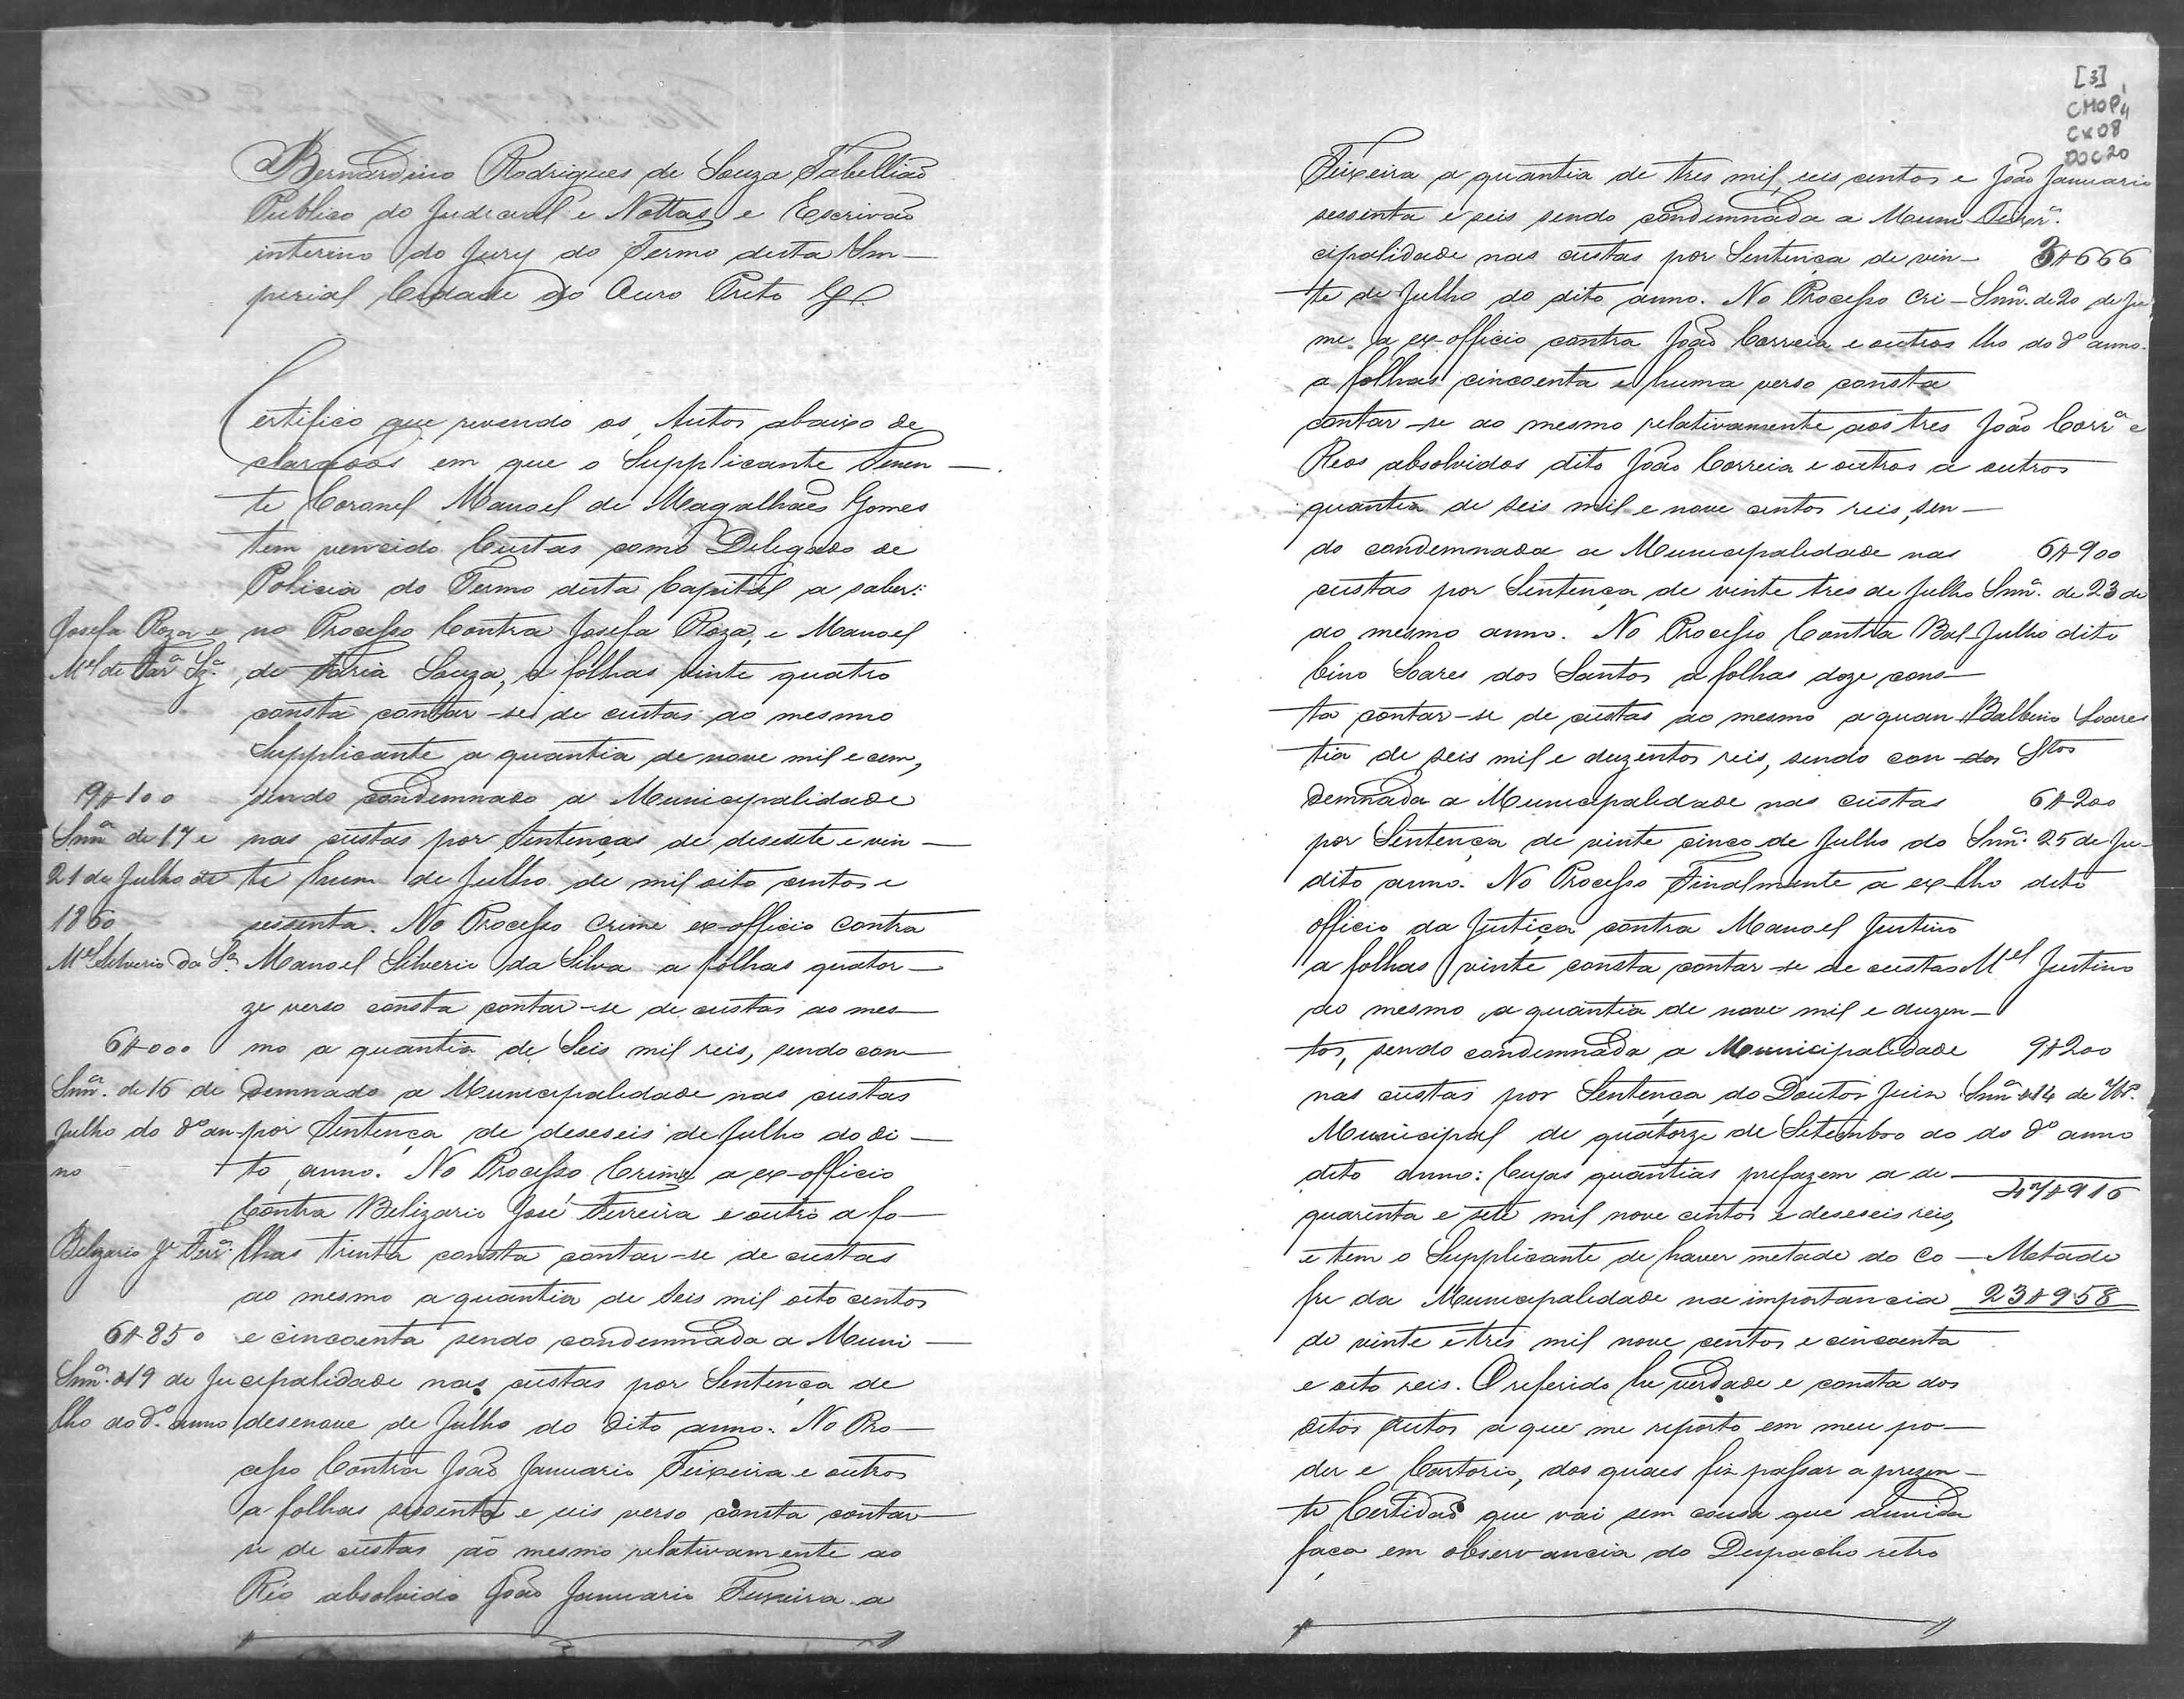 Bernardino Rodrigues de Souza Tabellião
Publico do Judicial e Nottas e Escrivão
interino do Jury do Termo desta Im-
perial Cidade do Ouro Preto
Certifico que revendo os Autos abaixo de
clarados em que o Supplicante Tenen-
te Coronel Manoel de Magalhães Gomes
tem vencido Custas como Delegado de
Policia do Termo desta Capital a saber:
Josefa Roza e
Mel de Fara Sza.
no Processo Contra Josefa Roza, e Manoel
de Faria Souza, a folhas vinte quatro
consta contar-se de custas ao mesmo
Supplicante a quantia de nove mil e cem,
9$100
sendo condemnado a Municipalidade
Snna de 17 e
21 de Julho de
1860
nas custas por Sentenças de desesete e vin-
te hum de Julho de mil oito centos e
sessenta. No Processo Crime ex-officio contra
Mel Silverio da Sa
Manoel Silverio da Silva a folhas quator-
ze verso consta contar-se de custas ao mes-
6$000
mo a quantia de Seis mil reis, sendo con-
Snna. de 16 de
Julho do do an-
no
demnado a Municipalidade nas custas
por Sentença de deseseis de Julho do di-
to anno. No Processo Crime a ex-officio
Contra Belizario José Ferreira e outro a fo-
Belizario Je Ferra.
lhas trinta consta contar-se de custas
ao mesmo a quantia de Seis mil oito centos
6$850
e cincoenta sendo condemnada a Muni-
Snna. d19 de Ju
lho do do. anno
cipalidade nas custas por Sentença de
desenove de Julho do dito anno. No Pro-
cesso Contra João Januario Teixeira e outros
a folhas sessenta e seis verso consta contar-
se de custas ao mesmo relativamente ao
Réo absolvido João Januario Teixeira a
[3]
CMOP
CX08
DOC20
Teixeira a quantia de tres mil, seis centos e
sessenta e seis sendo condemnada a Muni-
cipalidade nas custas por Sentença de vin-
te de Julho do dito anno. No Processo Cri-
João Januario
Teixra.
3$666
Snna. de 20 de Ju
lho do do anno.
me a ex-officio contra João Correia e outros
a folhas cincoenta e huma verso consta
contar-se ao mesmo relativamente aos tres
Reos absolvidos dito João Correia e outros a
João Corra e
outros
quantia de seis mil e nove centos reis, sen-
do condemnada a Municipalidade nas
6$900
custas por Sentença de vinte tres de Julho
do mesmo anno. No Processo Contra Bal-
Snna. de 23 de
Julho dito
bino Soares dos Santos a folhas doze cons-
ta contar-se de custas ao mesmo a quan
tia de seis mil e duzentos reis, sendo con-
Balbino Soares
dos Stos
demnada a Municipalidade nas custas
6$200
por Sentença de vinte cinco de Julho do
dito anno. No Processo Finalmente a ex-
Snna. 25 de Ju-
lho dito
officio da Justiça contra Manoel Justino
a folhas vinte consta contar-se de custas
Mel Justino
ao mesmo a quantia de nove mil e duzen-
tos, sendo condemnada a Municipalidade
9$200
nas custas por Sentença do Doutor Juiz
Municipal de quatorze de Setembro do
Snna d14 de 7bro.
do do anno
dito anno: Cujas quantias prefazem a de
47$916
quarenta e sete mil nove centos e deseseis reis,
e tem o Supplicante de haver metade do Co-
Metade
fre da Municipalidade na importancia
23$958
de vinte e tres mil nove centos e cincoenta
e oito reis. O referido he verdade e consta dos
ditos Autos a que me reporto em meu po-
der e Cartorio, dos quaes fiz passar a prezen-
te Certidão que vai sem cousa que duvida
faça em observancia do Despacho retro